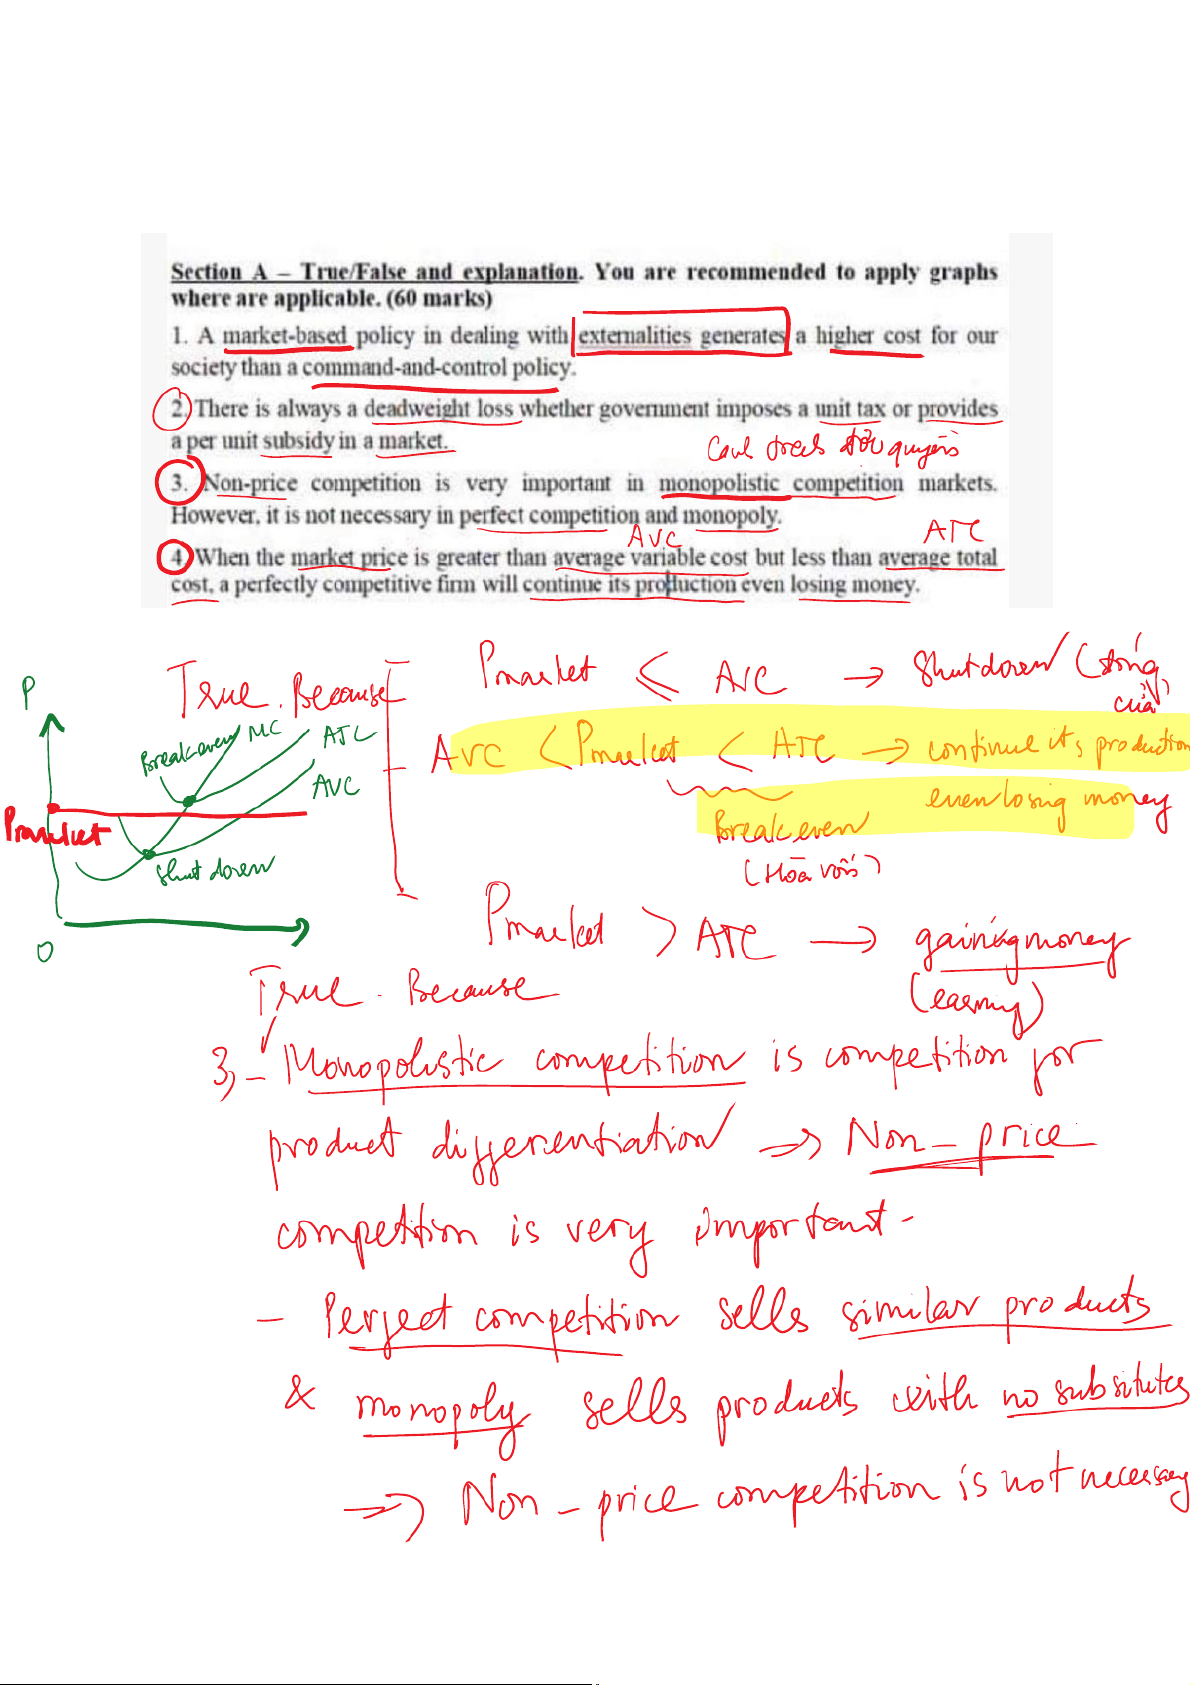 Section A – True/False and explanation. You are recommended to apply graphs
where are applicable. (60 marks)
1. A market-based policy in dealing with externalities generates a higher cost for our
society than a command-and-control policy.
2. There is always a deadweight loss whether government imposes a unit tax or provides
a per unit subsidy in a market.
3. Non-price competition is very important in monopolistic competition markets.
However, it is not necessary in perfect competition and monopoly.
AVC ATC
4. When the market price is greater than average variable cost but less than average total
cost, a perfectly competitive firm will continue its production even losing money.
True. Because
Pmarket < AVC → Shutdown (đóng
cửa)
AVC < Pmarket < ATC → continue its production
even losing money
Break even
(Hòa vốn)
Pmarket > ATC → gaining money
(earning)
P
Break even MC ATC
AVC
Pmarket
Shut down
0
True. Because
3, - Monopolistic competition is competition for
product differentiation => Non - price
competition is very important -
- Perfect competition sells similar products
& monopoly sells products with no subsitutes
=> Non - price competition is not necessary